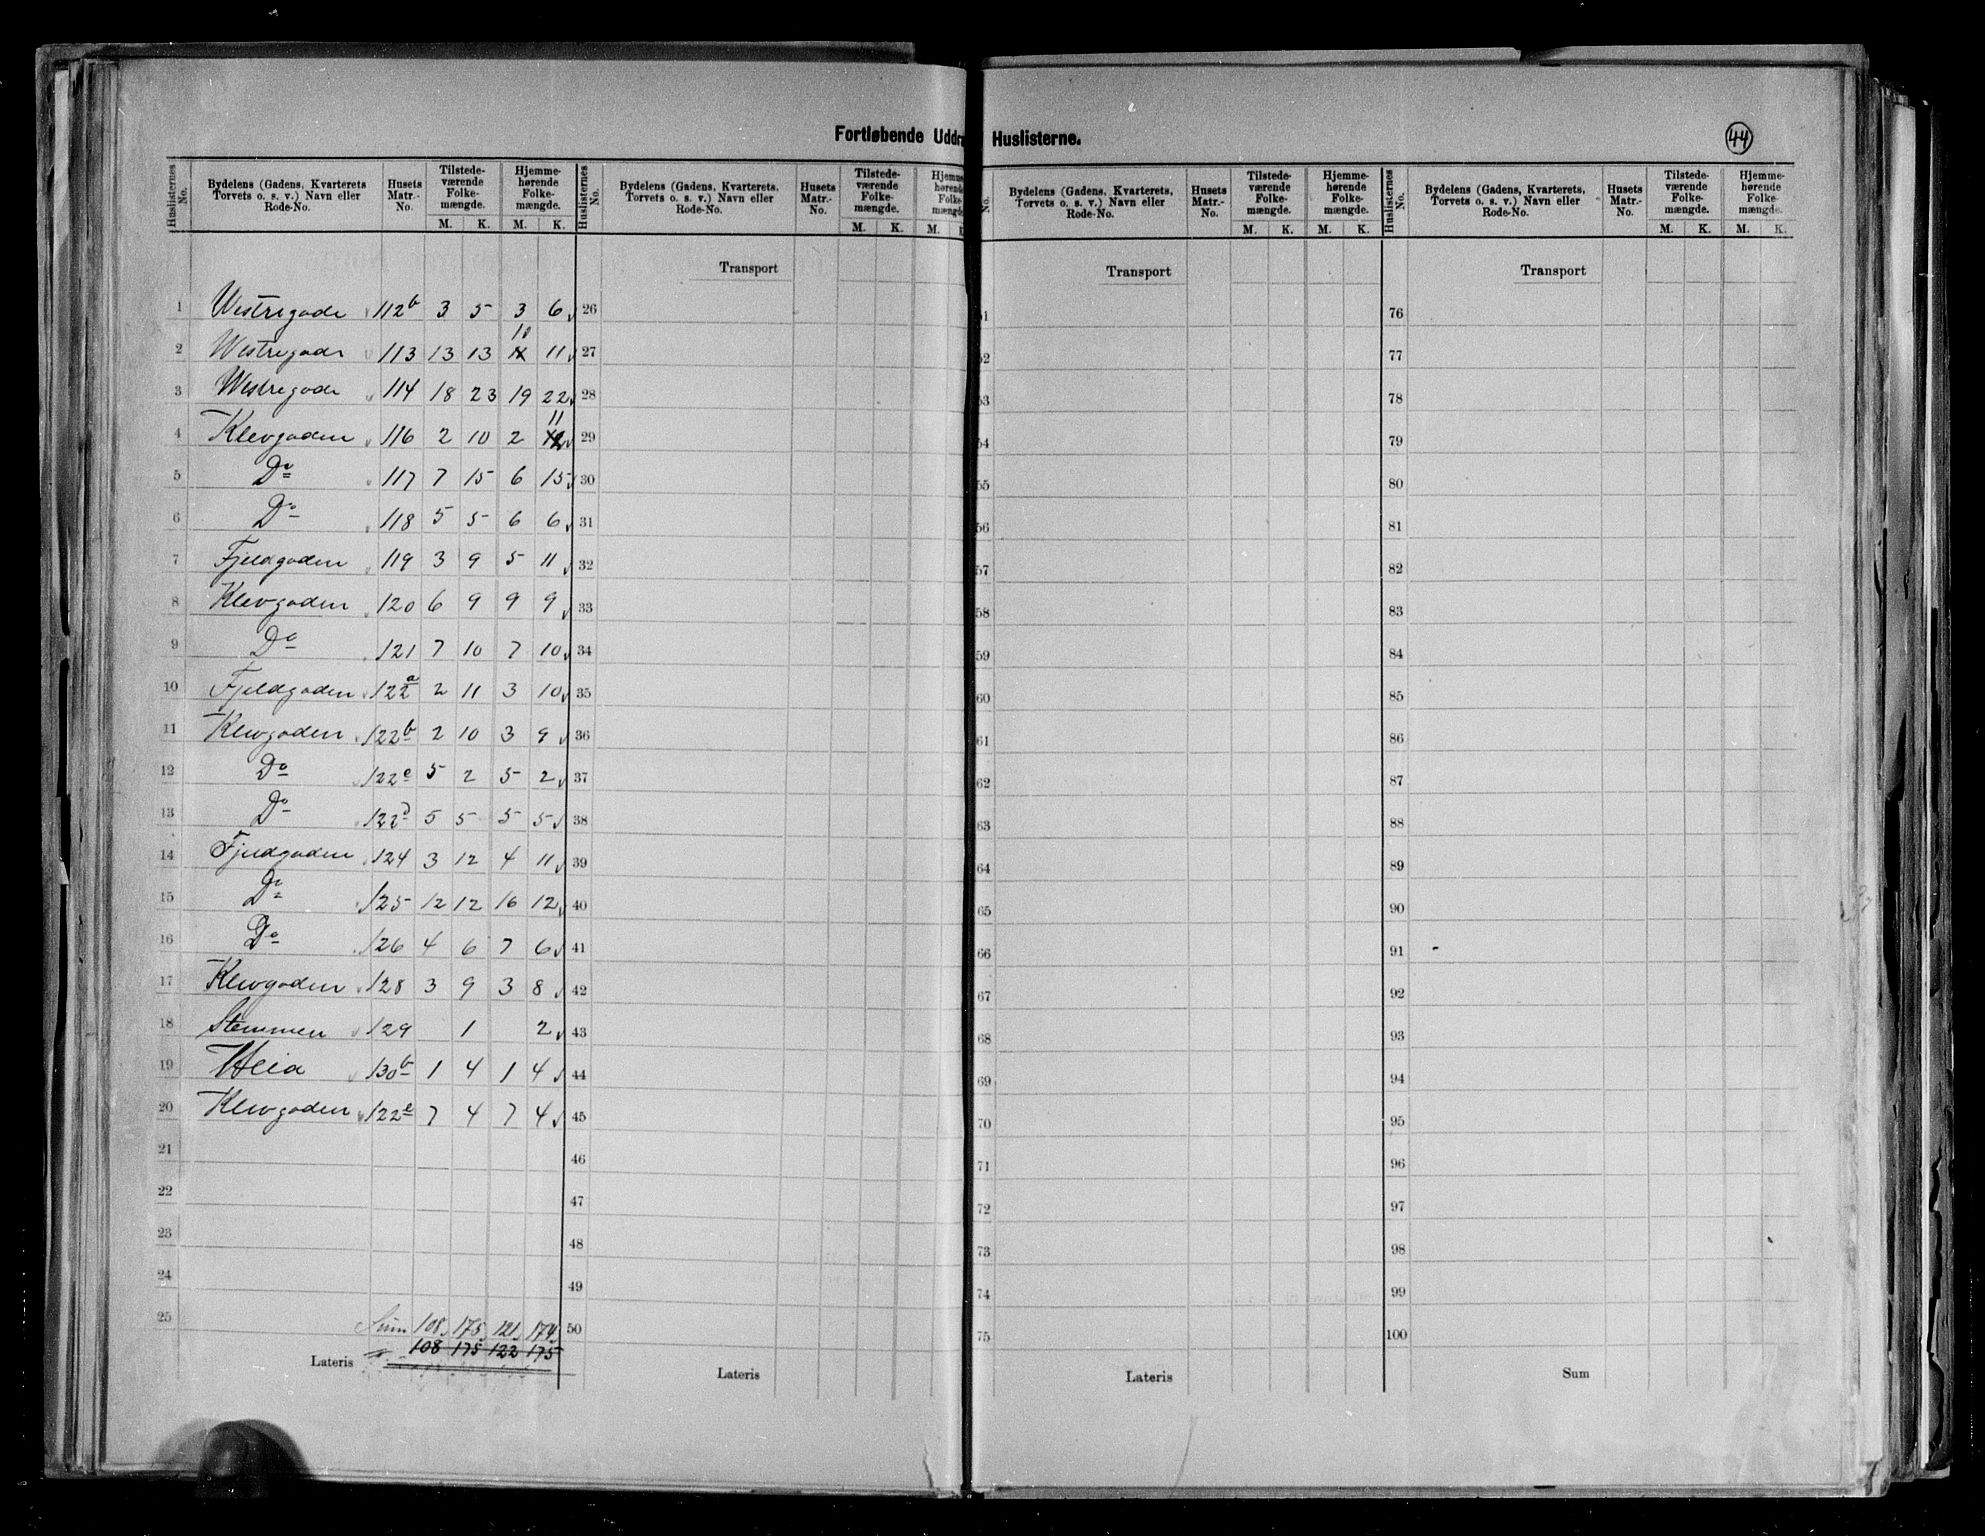 Fortløbende Uddr Huslisterne.
44
Huslisternes No. | Bydelens (Gadens, Kvarterets Torvets o. s. v.) Navn eller Rode-No. | Husets Matr.-No. | Tilstedeværende Folkemængde. M. K. | Hjemmehørende Folkemængde. M. K.
1 Westregade 112b 3 5 3 6
10
2 Westregade 113 13 13 11 11
3 Westregade 114 18 23 19 22
11
4 Klevgaden 116 2 10 2 12
5 Do 117 7 15 6 15
6 Do 118 5 5 6 6
7 Fjeldgaden 119 3 9 5 11
8 Klevgaden 120 6 9 9 9
9 Do 121 7 10 7 10
10 Fjeldgaden 122a 2 11 3 10
11 Klevgaden 122b 2 10 3 9
12 Do 122c 5 2 5 2
13 Do 122d 5 5 5 5
14 Fjeldgaden 124 3 12 4 11
15 Do 125 12 12 16 12
16 Do 126 4 6 7 6
17 Klevgaden 128 3 9 3 8
18 Stemmen 129 1 2
19 Heia 130b 1 4 1 4
20 Klevgaden 122e 7 4 7 4
21
22
23
24
25
Sum 108 175 121 174
108 175 122 175
Lateris
Huslisternes No. | Bydelens (Gadens, Kvarterets, Torvets o. s. v.) Navn eller Rode-No. | Husets Matr.-No. | Tilstedeværende Folkemængde. M. K. | Hjemmehørende Folkemængde. M.
Transport
26
27
28
29
30
31
32
33
34
35
36
37
38
39
40
41
42
43
44
45
46
47
48
49
50
Lateris
No. | Bydelens (Gadens, Kvarterets, Torvets o. s. v.) Navn eller Rode-No. | Husets Matr.-No. | Tilstedeværende Folkemængde. M. K. | Hjemmehørende Folkemængde. M. K.
Transport
51
52
53
54
55
56
57
58
59
60
61
62
63
64
65
66
67
68
69
70
71
72
73
74
75
Lateris
Huslisternes No. | Bydelens (Gadens, Kvarterets, Torvets o. s. v.) Navn eller Rode-No. | Husets Matr.-No. | Tilstedeværende Folkemængde. M. K. | Hjemmehørende Folkemængde. M. K.
Transport
76
77
78
79
80
81
82
83
84
85
86
87
88
89
90
91
92
93
94
95
96
97
98
99
100
Sum